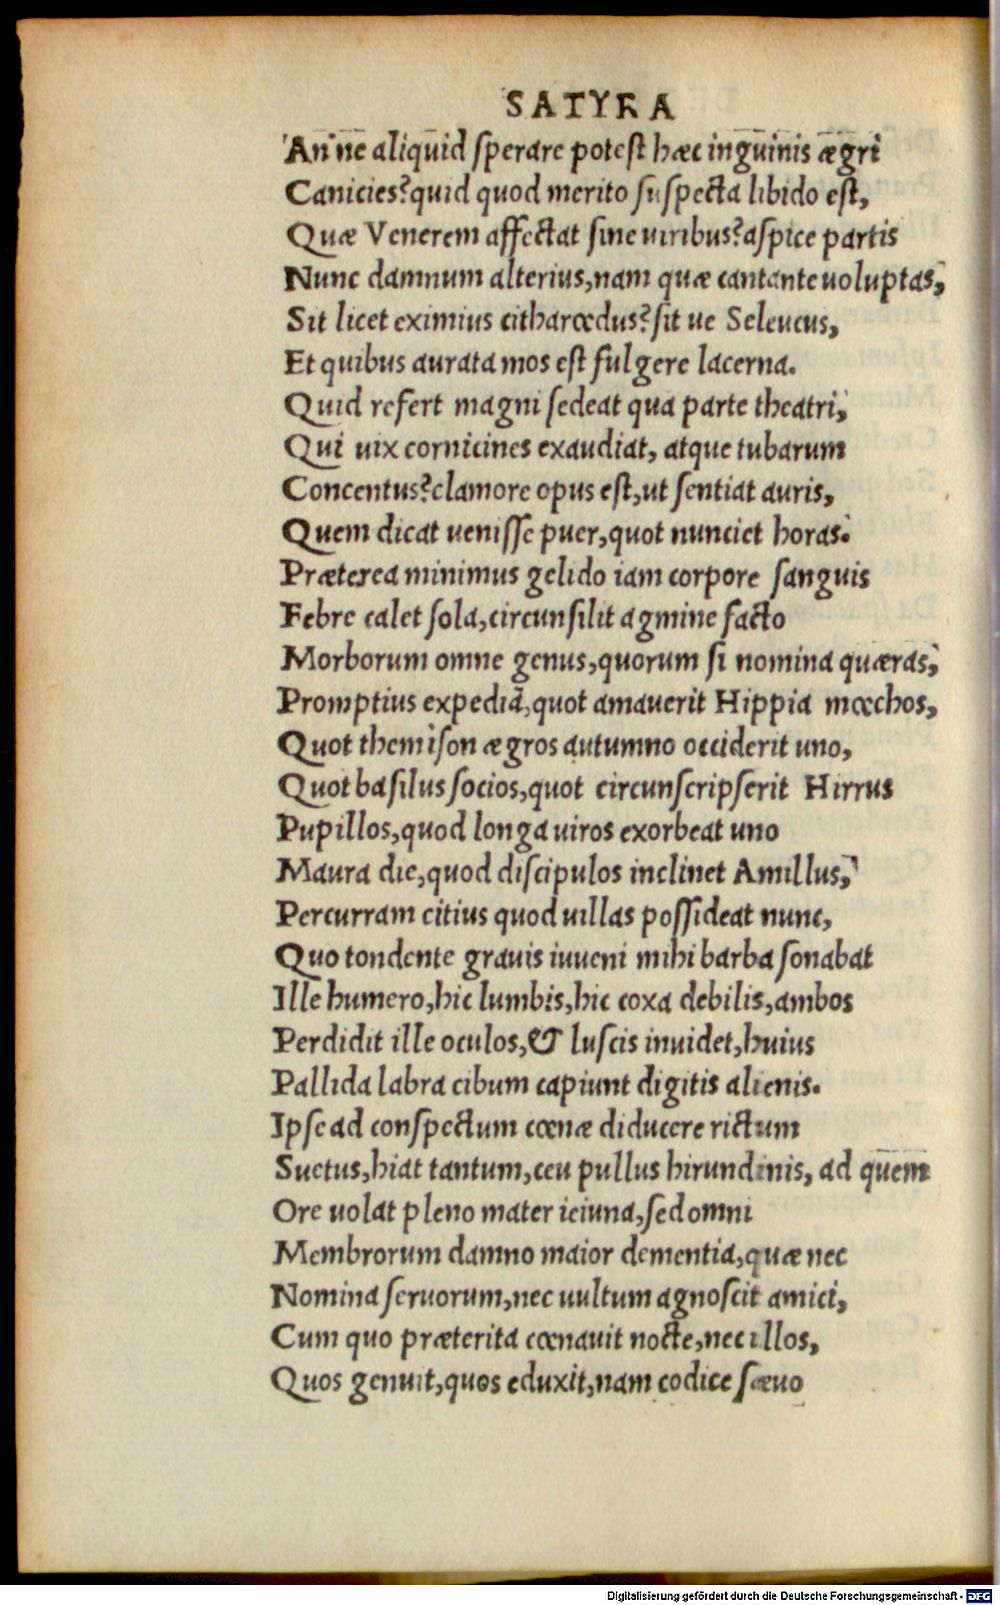 SATYRA
An ne aliquid sperare potest hæc inguinis ægri
Canicies? quid quod merito suspecta libido est,
Quæ Venerem affectat sine uiribus? aspice partis
Nunc damnum alterius, nam quæ cantante uoluptas,
Sit licet eximius citharœdus? sit ue Seleucus,
Et quibus aurata mos est fulgere lacerna.
Quid refert magni sedeat qua parte theatri,
Qui uix cornicines exaudiat, atque tubarum
Concentus? clamore opus est, ut sentiat auris,
Quem dicat uenisse puer, quot nunciet horas.
Præterea minimus gelido iam corpore sanguis
Febre calet sola, circunsilit agmine facto
Morborum omne genus, quorum si nomina quæras,
Promptius expediã, quot amauerit Hippia mœchos,
Quot themison ægros autumno occiderit uno,
Quot basilus socios, quot circunscripserit Hirrus
Pupillos, quod longa uiros exorbeat uno
Maura die, quod discipulos inclinet Amillus,
Percurram citius quod uillas possideat nunc,
Quo tondente grauis iuueni mihi barba sonabat
Ille humero, hic lumbis, hic coxa debilis, ambos
Perdidit ille oculos, & luscis inuidet, huius
Pallida labra cibum capiunt digitis alienis.
Ipse ad conspectum cœnæ diducere rictum
Suetus, hiat tantum, ceu pullus hirundinis, ad quem
Ore uolat pleno mater ieiuna, sed omni
Membrorum damno maior dementia, quæ nec
Nomina seruorum, nec uultum agnoscit amici,
Cum quo præterita cœnauit nocte, nec illos,
Quos genuit, quos eduxit, nam codice sæuo
Digitalisierung gefördert durch die Deutsche Forschungsgemeinschaft - DFG